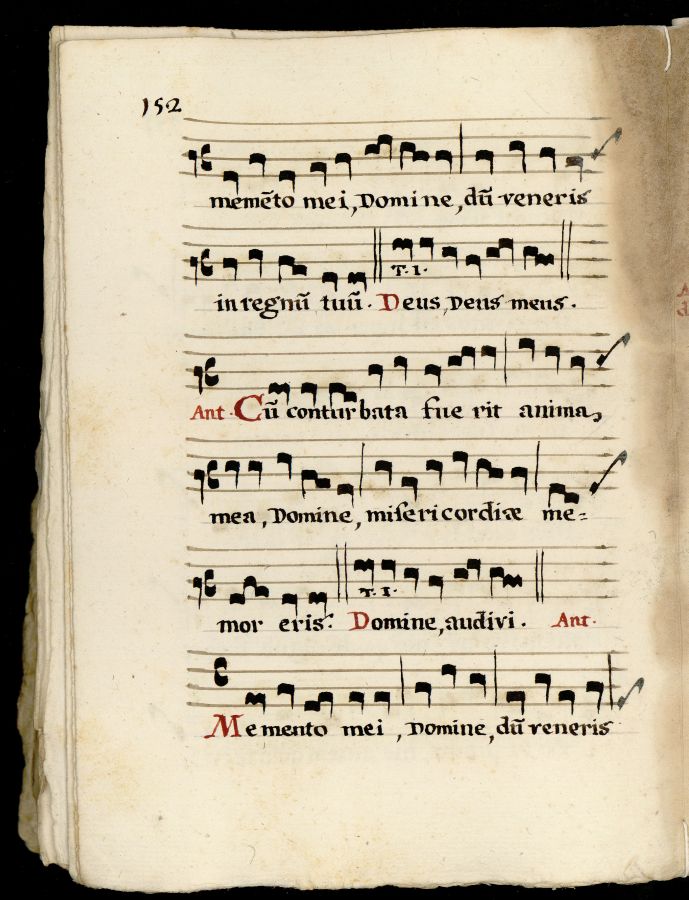 152
memẽto mei, Domine, dũ veneris
T. I.
in regnũ tuũ. Deus, Deus meus.
Ant. Cũ conturbata fue rit anima,
mea, Domine, miſeri cordiæ me=
T. I.
mor eris. Domine, audivi. Ant.
Me mento mei, Domine, dũ veneris